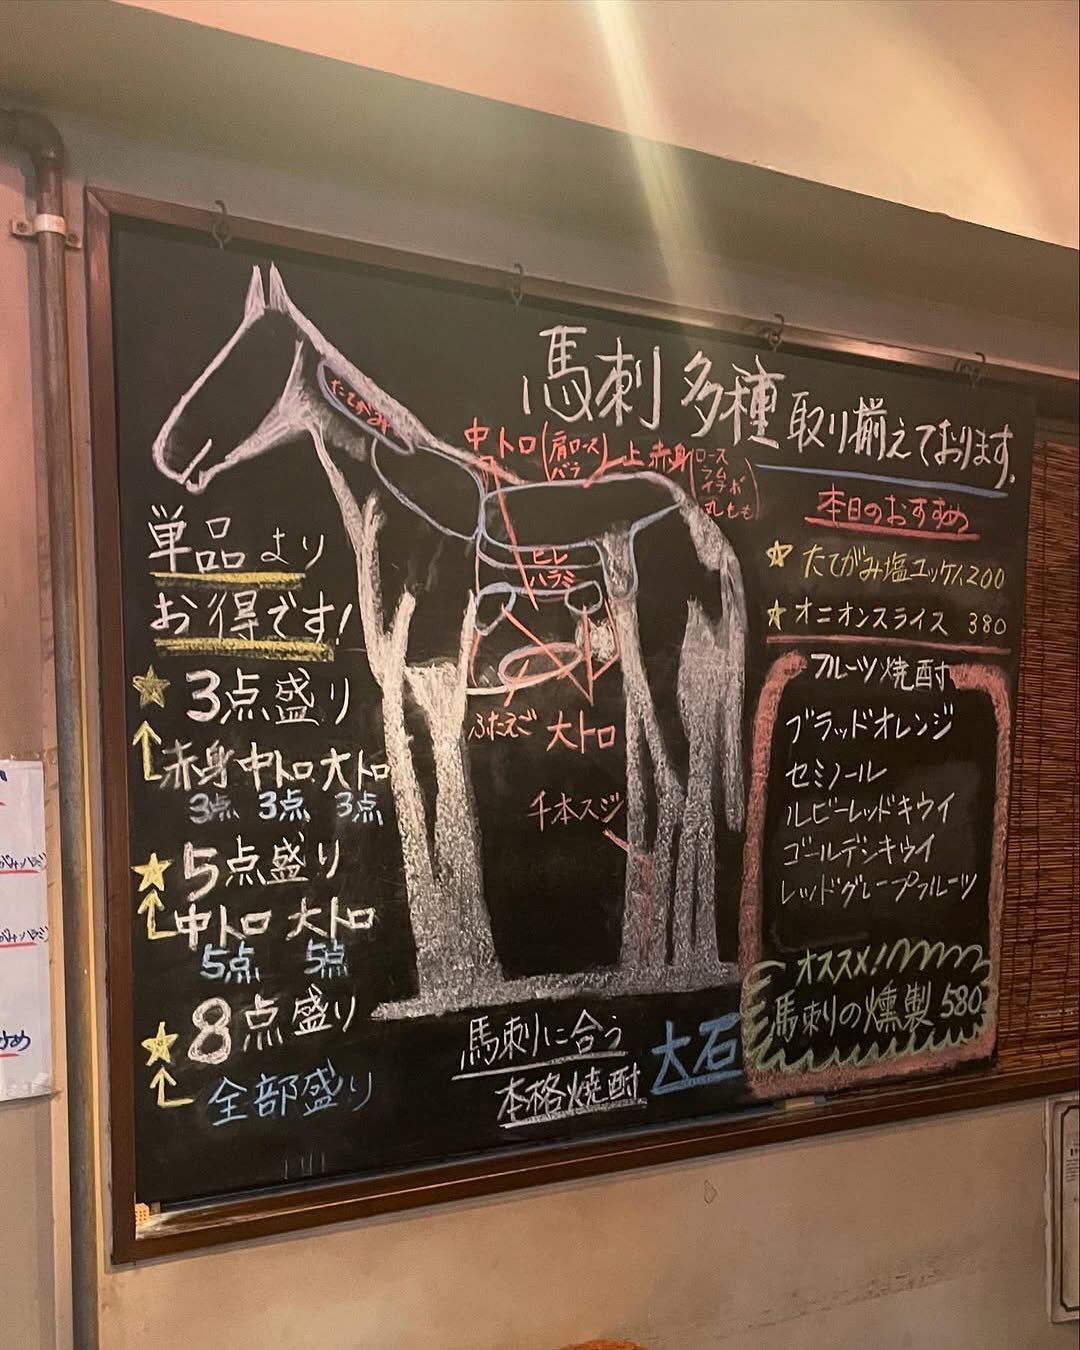 馬刺 多種 取り揃えております。
たてがみ
中トロ(肩ロース バラ)
上赤身(ロース ラム イチボ 丸もも)
ヒレ
ハラミ
ふたえご 大トロ
千本スジ
単品より
お得です!
☆3点盛り
赤身 中トロ 大トロ
3点 3点 3点
☆5点盛り
中トロ 大トロ
5点 5点
☆8点盛り
全部盛り
馬刺に合う
本格焼酎 大石
本日のおすすめ
☆たてがみ塩ユッケ 1,200
☆オニオンスライス 380
フルーツ焼酎
ブラッドオレンジ
セミノール
ルビーレッドキウイ
ゴールデンキウイ
レッドグレープフルーツ
オススメ!
馬刺の燻製 580